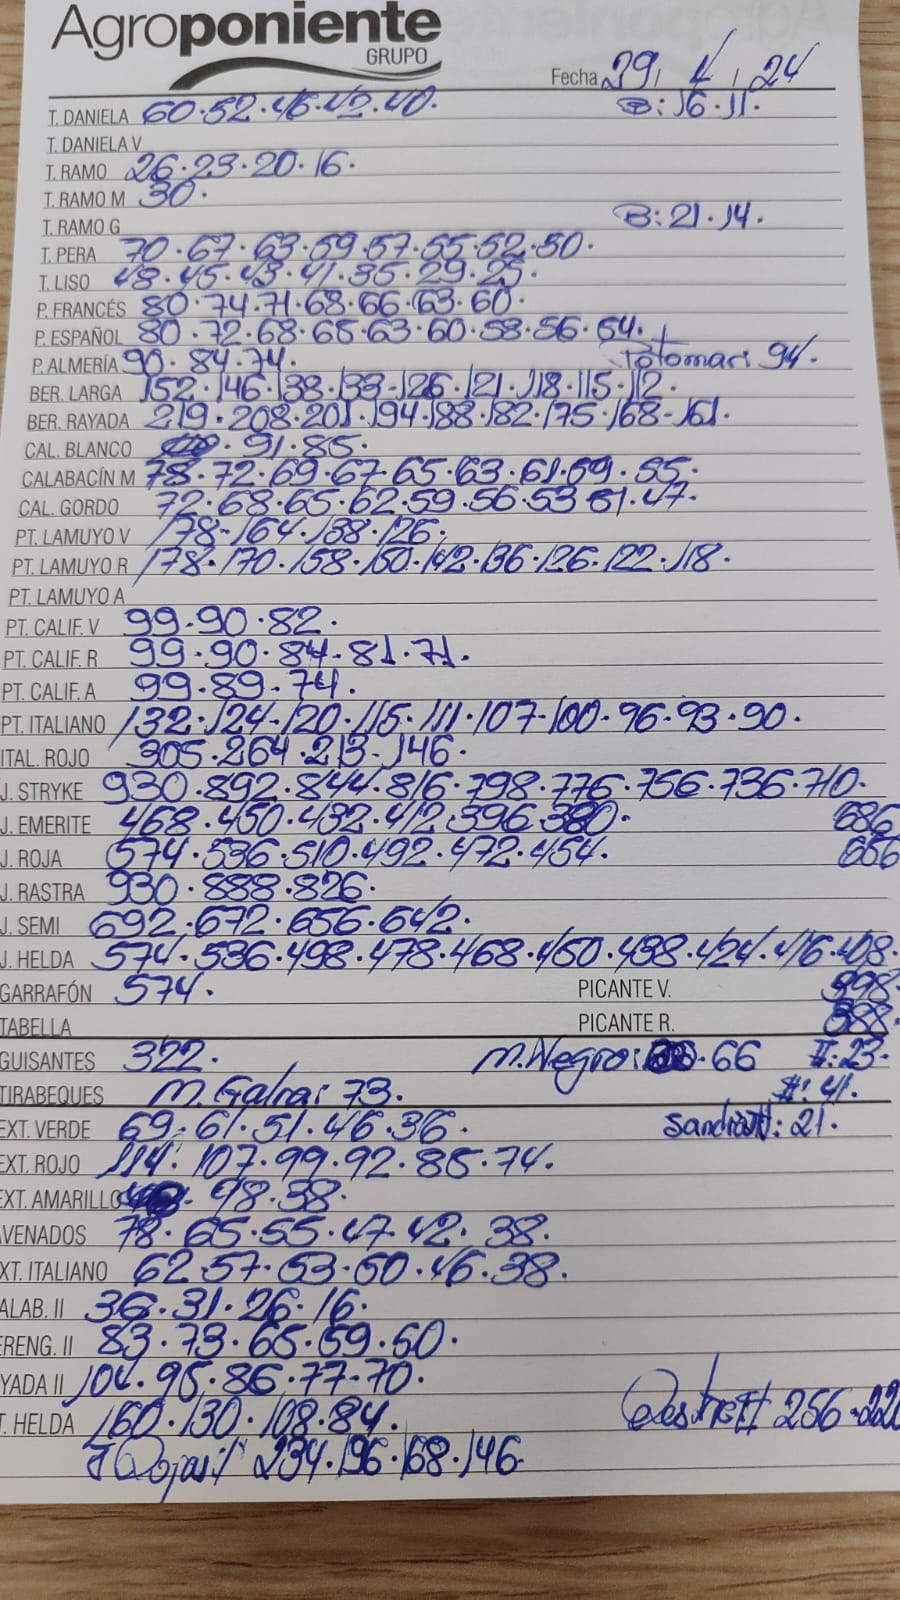 Agroponiente
GRUPO
Fecha 29 / 4 / 24
T. DANIELA 60·52·46·42·40. B:16·11.
T. DANELA V
T. RAMO 26·23·20·16.
T. RAMO M 30.
T. RAMO G B:21·14.
T. PERA 70·67·63·59·57·55·52·50.
T. LISO 48·45·43·41·35·29·25.
P. FRANCÉS 80·74·71·68·66·63·60.
P. ESPAÑOL 80·72·68·65·63·60·58·56·54.
P. ALMERÍA 90·84·74. Totomari 94.
BER. LARGA 152·146·138·133·126·121·118·115·112.
BER. RAYADA 219·208·201·194·188·182·175·168·161.
CAL. BLANCO 91·85.
CALABACÍN M 78·72·69·67·65·63·61·59·55.
CAL. GORDO 72·68·65·62·59·56·53·51·47.
PT. LAMUYO V 178·164·138·126.
PT. LAMUYO R 178·170·158·150·142·136·126·122·118.
PT. LAMUYO A
PT. CALIF. V 99·90·82.
PT. CALIF. R 99·90·84·81·71.
PT. CALIF. A 99·89·74.
PT. ITALIANO 132·124·120·115·111·107·100·96·93·90.
ITAL. ROJO 305·264·213·146.
J. STRYKE 930·892·844·816·798·776·756·736·710.
J. EMERITE 468·450·432·412·396·380. 686
J. ROJA 574·536·510·492·472·454. 656
J. RASTRA 930·888·826.
J. SEMI 692·672·656·642.
J. HELDA 574·536·498·478·468·450·438·424·416·408.
GARRAFÓN 574. PICANTE V. 398
TABELLA PICANTE R. 388
GUISANTES 322. M. Negro: 66 II:23.
TIRABEQUES M. Galia: 73. II:41.
EXT. VERDE 69·61·51·46·36. Sandia II:21.
EXT. ROJO 114·107·99·92·85·74.
EXT. AMARILLO 48·38.
VENADOS 78·65·55·47·42·38.
XT. ITALIANO 62·57·53·50·46·38.
ALAB. II 36·31·26·16.
ERENG. II 83·73·65·59·50.
YADA II 104·95·86·77·70.
T. HELDA 160·130·108·84. Rastra II 256·220
J Roja II 234·196·168·146